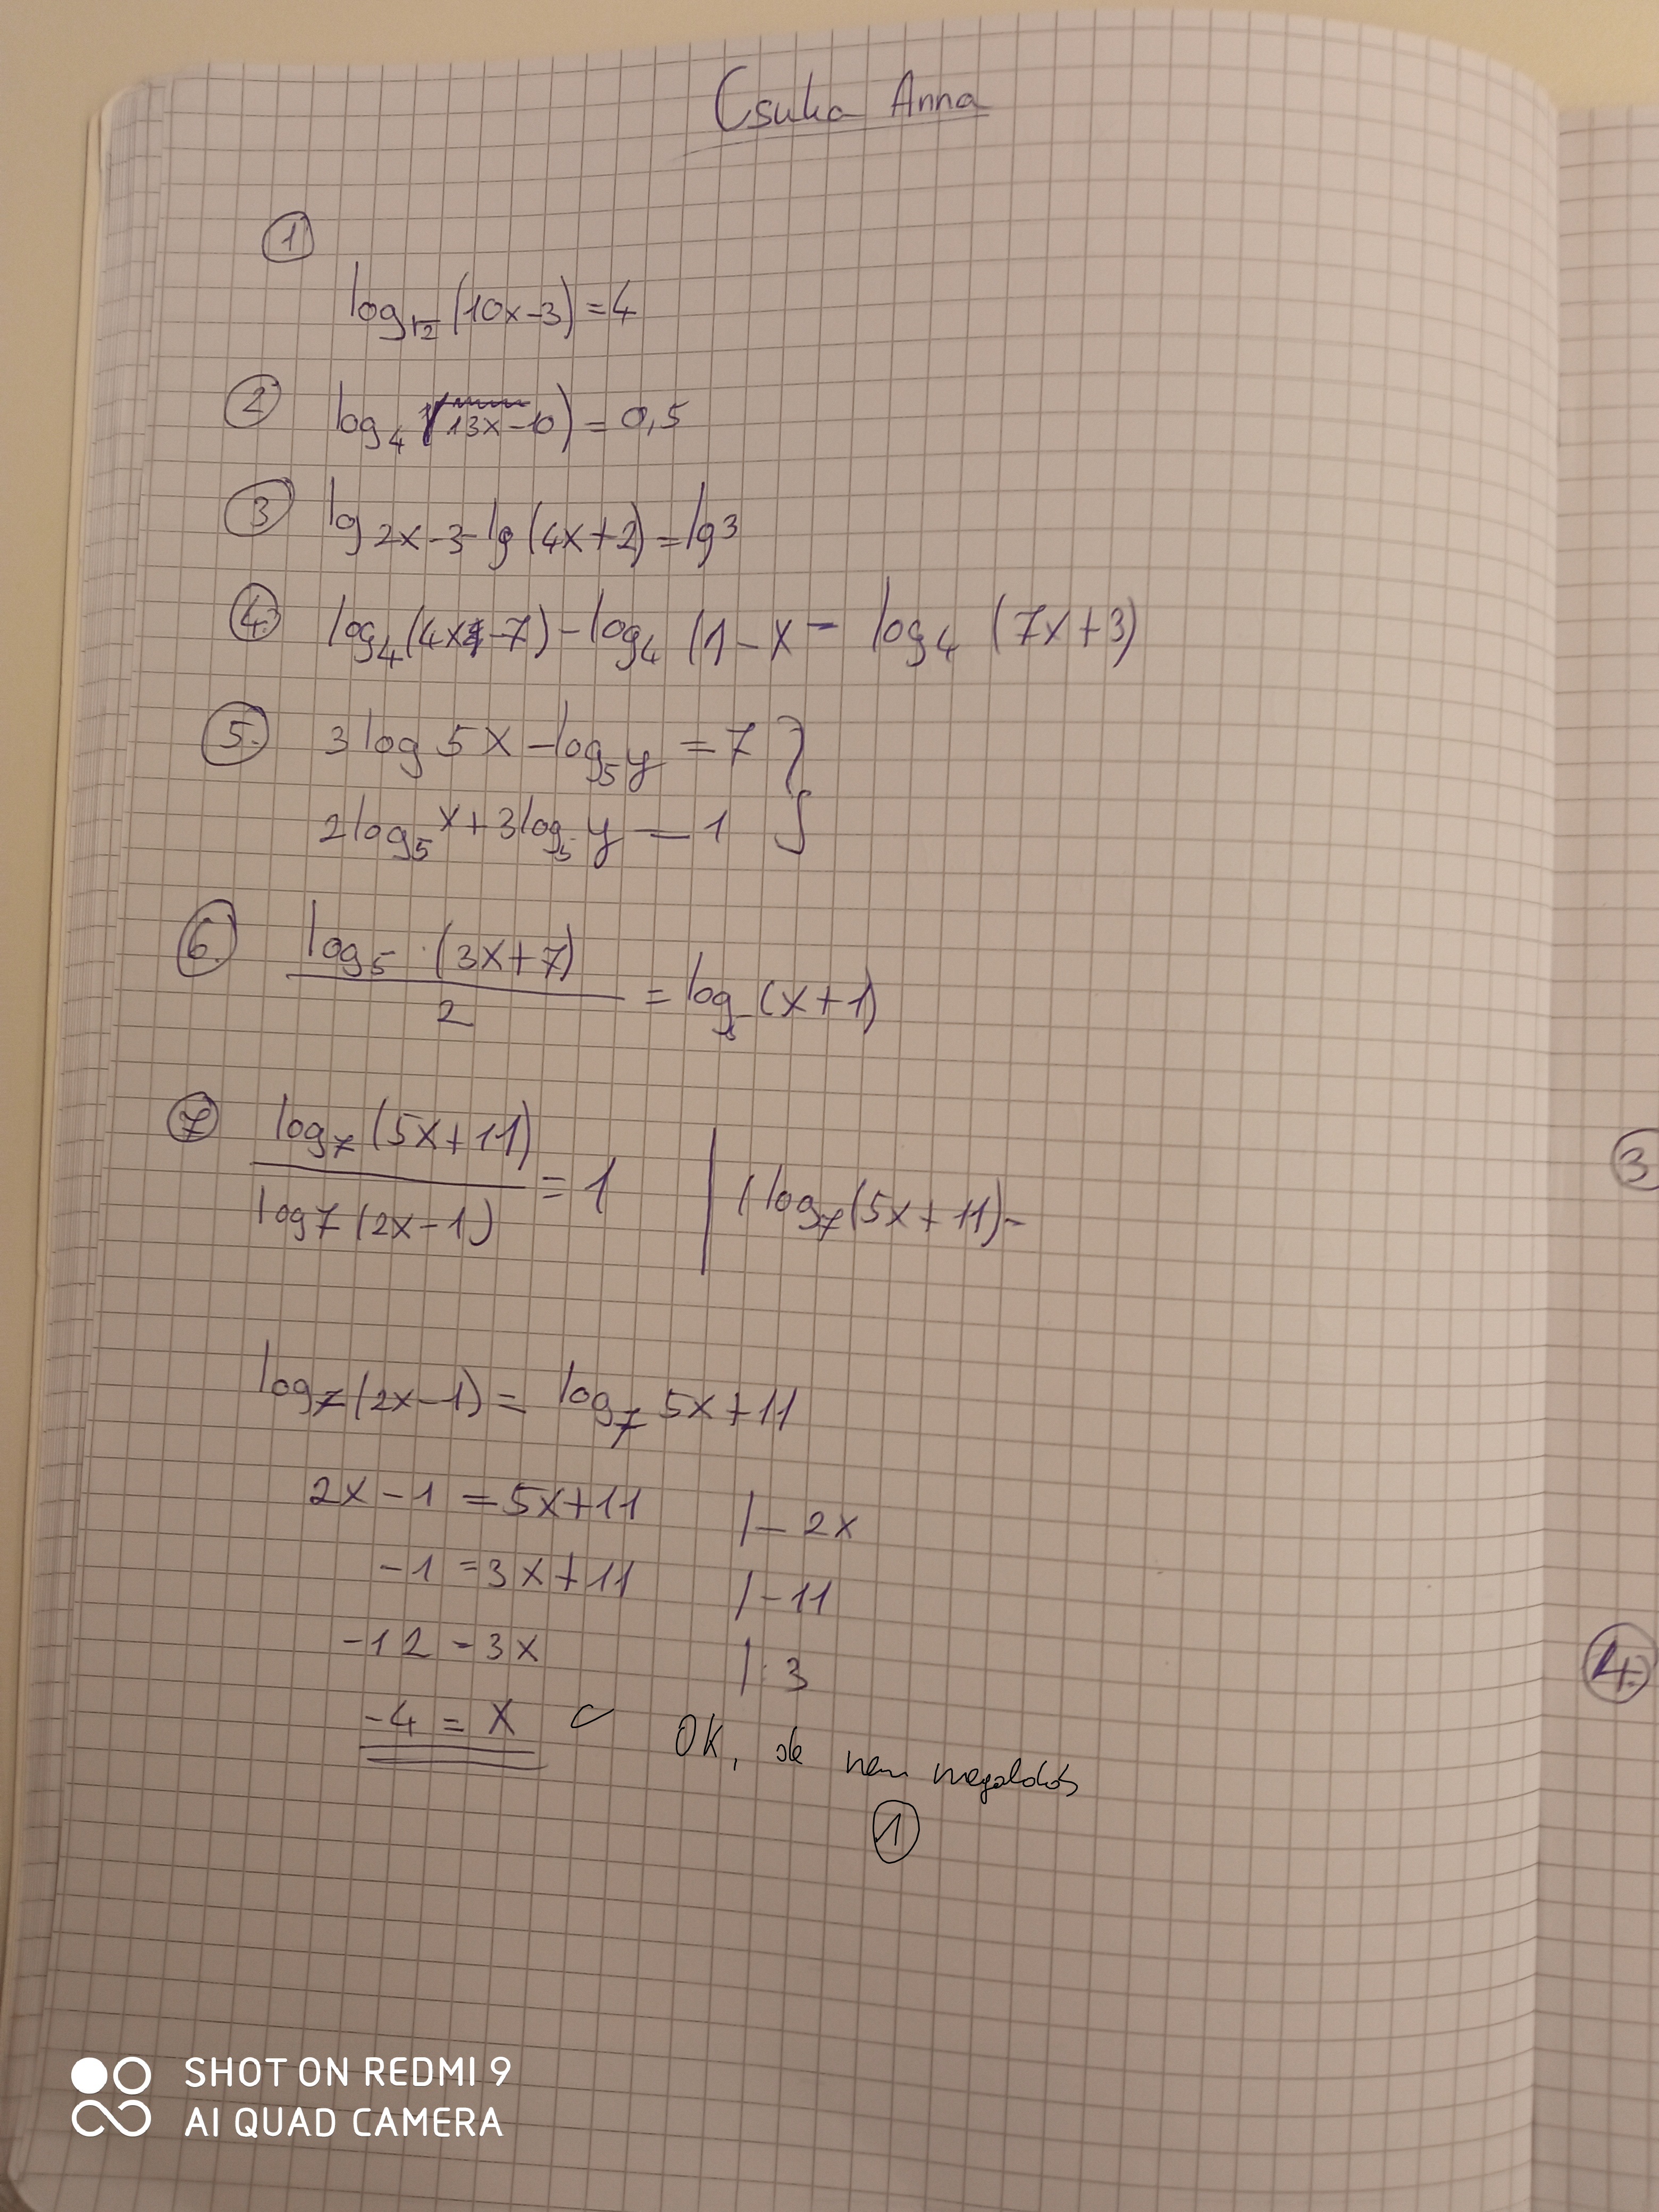 Csuka Anna
①
log√2 (10x-3) = 4
② log4 (13x-10) = 0,5
③ lg 2x-3 - lg (4x+2) = lg3
④. log4 (4x-7) - log4 (1-x = log4 (7x+3)
⑤. 3 log 5 x - log5 y = 7 }
2 log5 x + 3 log5 y = 1
⑥. log5 · (3x+7)
2
= log5 (x+1)
⑦ log7 (5x+11)
log7 (2x-1)
= 1 | · log7 (5x+11)-
log7 (2x-1) = log7 5x+11
2x-1 = 5x+11 /-2x
-1 = 3x+11 /-11
-12 = 3x /:3
-4 = x OK, de nem megoldás
①
3
4.
SHOT ON REDMI 9
AI QUAD CAMERA